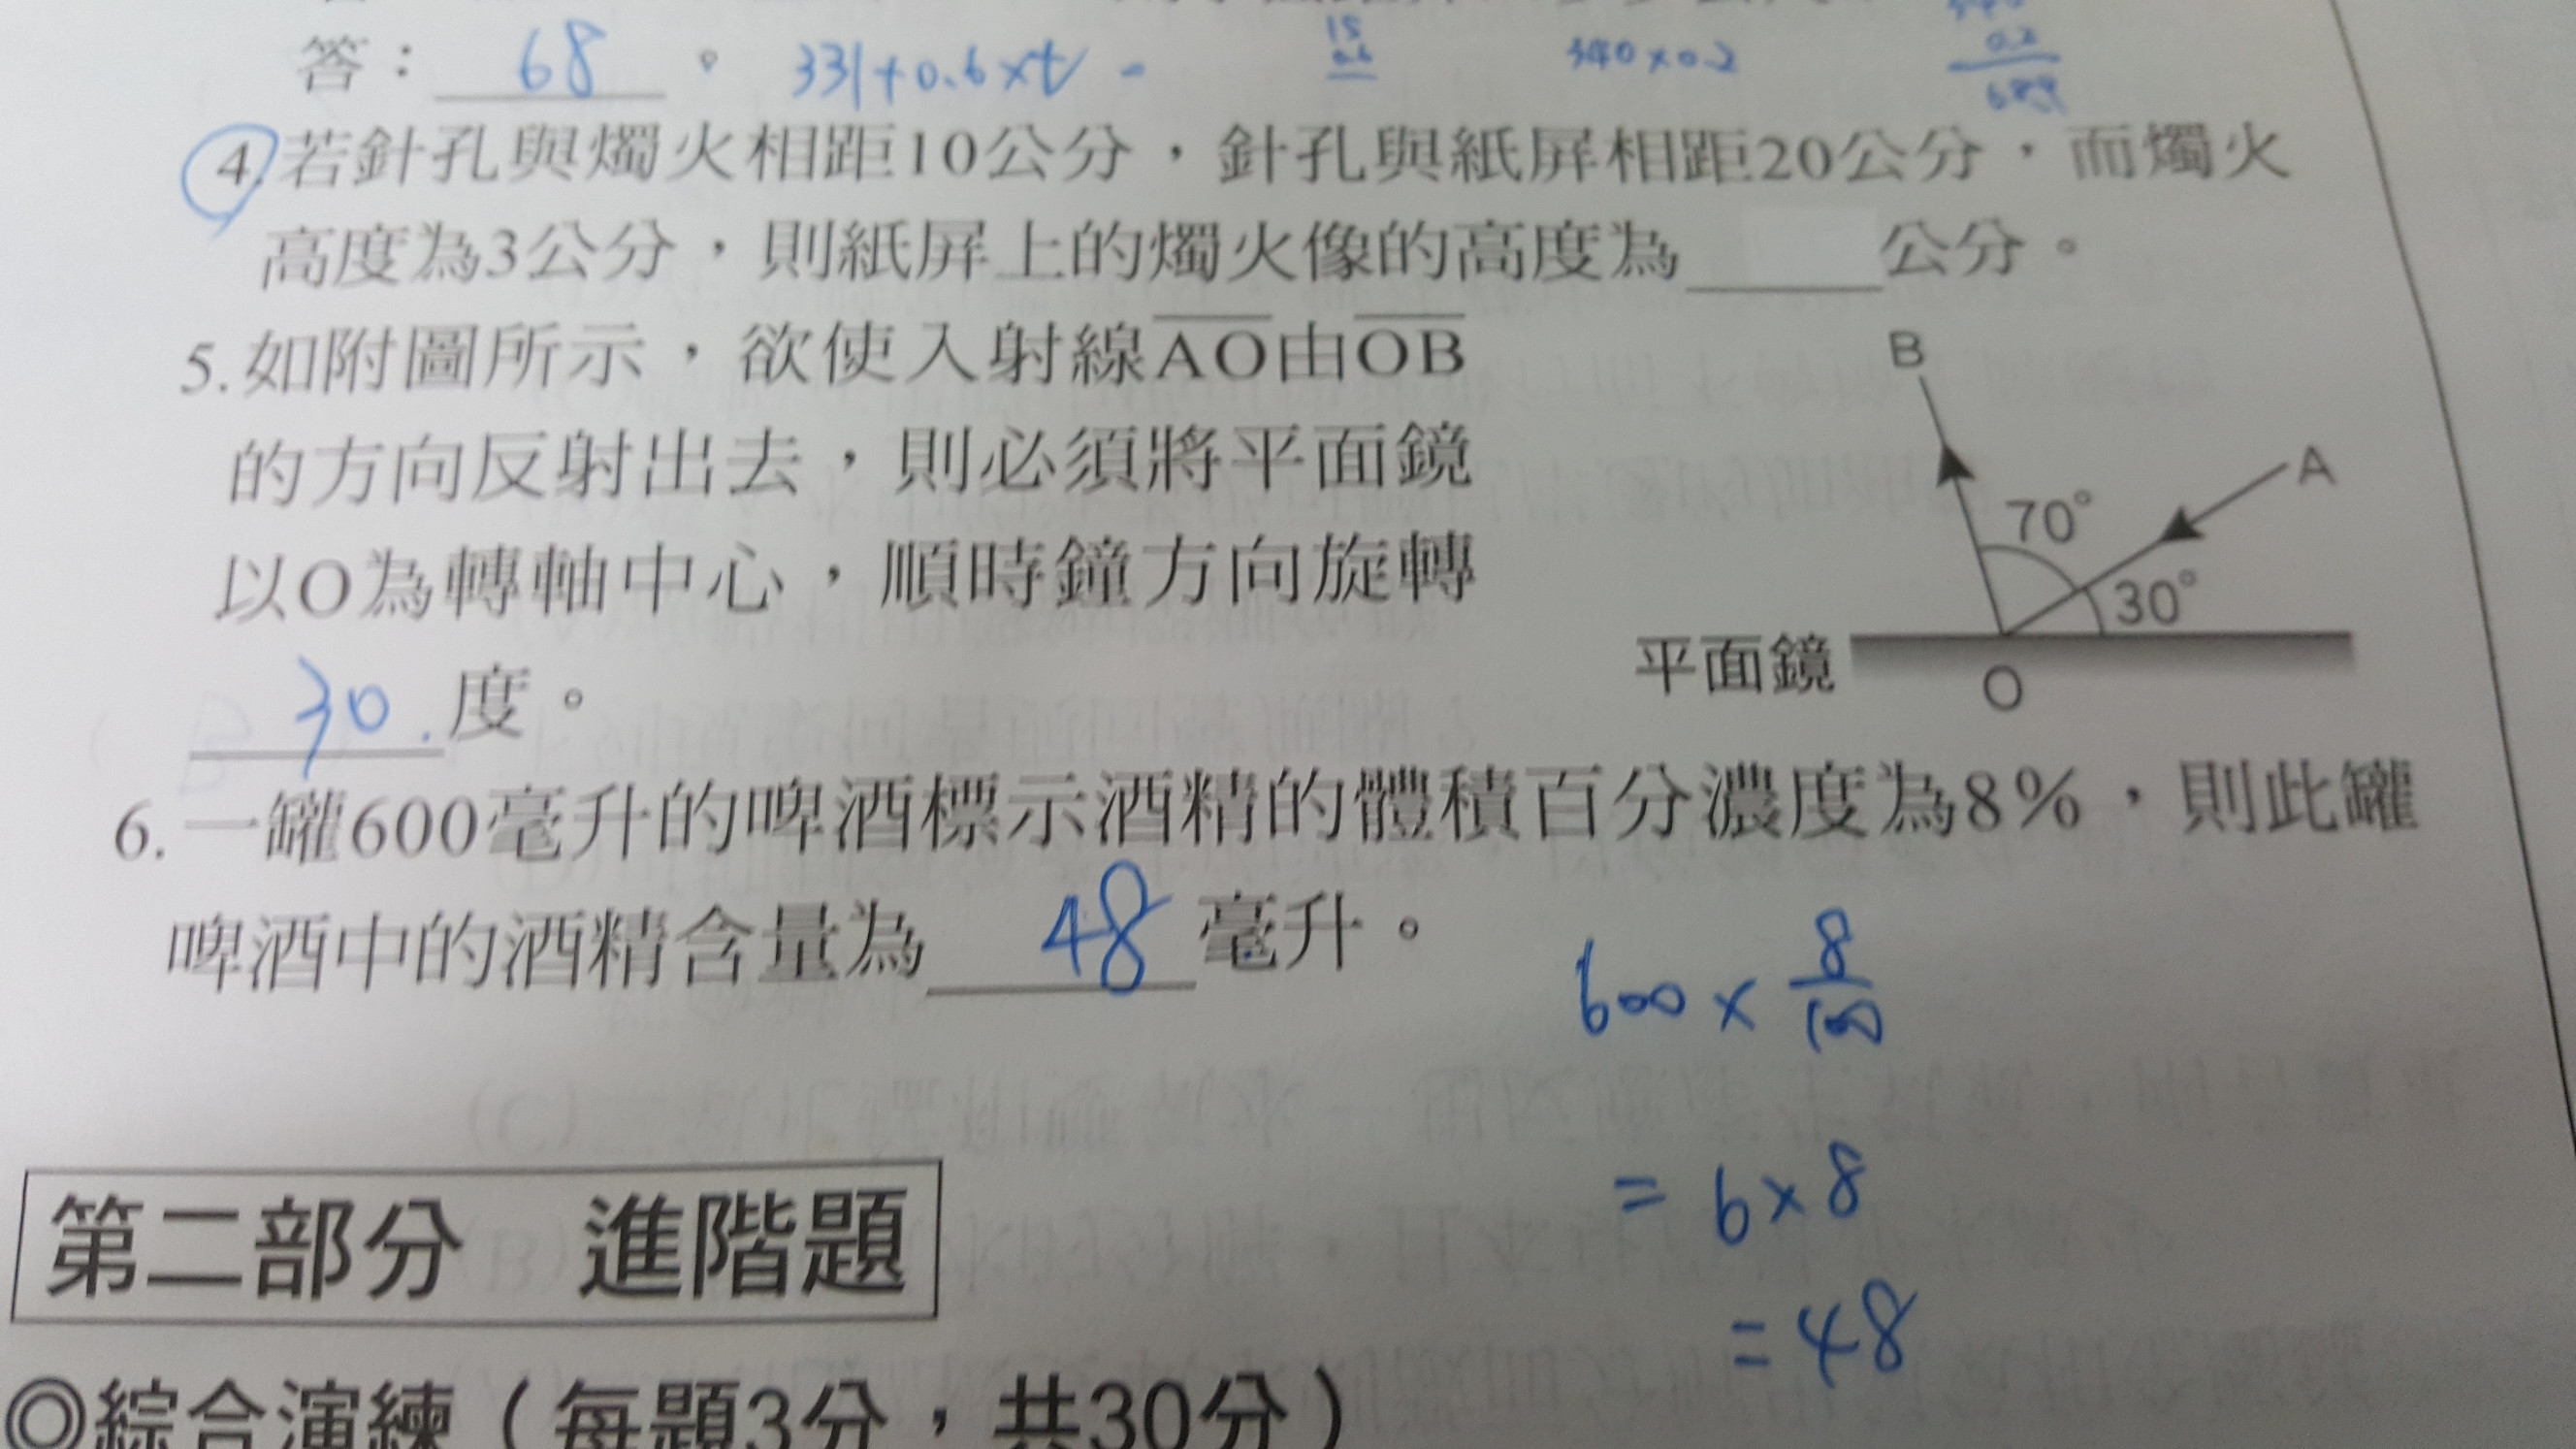 答：68。 331+0.6×t - 15 340×0.2
0.6 0.2
4.若針孔與燭火相距10公分，針孔與紙屏相距20公分，而燭火
高度為3公分，則紙屏上的燭火像的高度為____公分。
5.如附圖所示，欲使入射線AO由OB
的方向反射出去，則必須將平面鏡
以O為轉軸中心，順時鐘方向旋轉
30.度。
B
A
70°
30°
平面鏡
O
6.一罐600毫升的啤酒標示酒精的體積百分濃度為8%，則此罐
啤酒中的酒精含量為48毫升。
600×8/100
=6×8
=48
第二部分 進階題
◎綜合演練（每題3分，共30分）